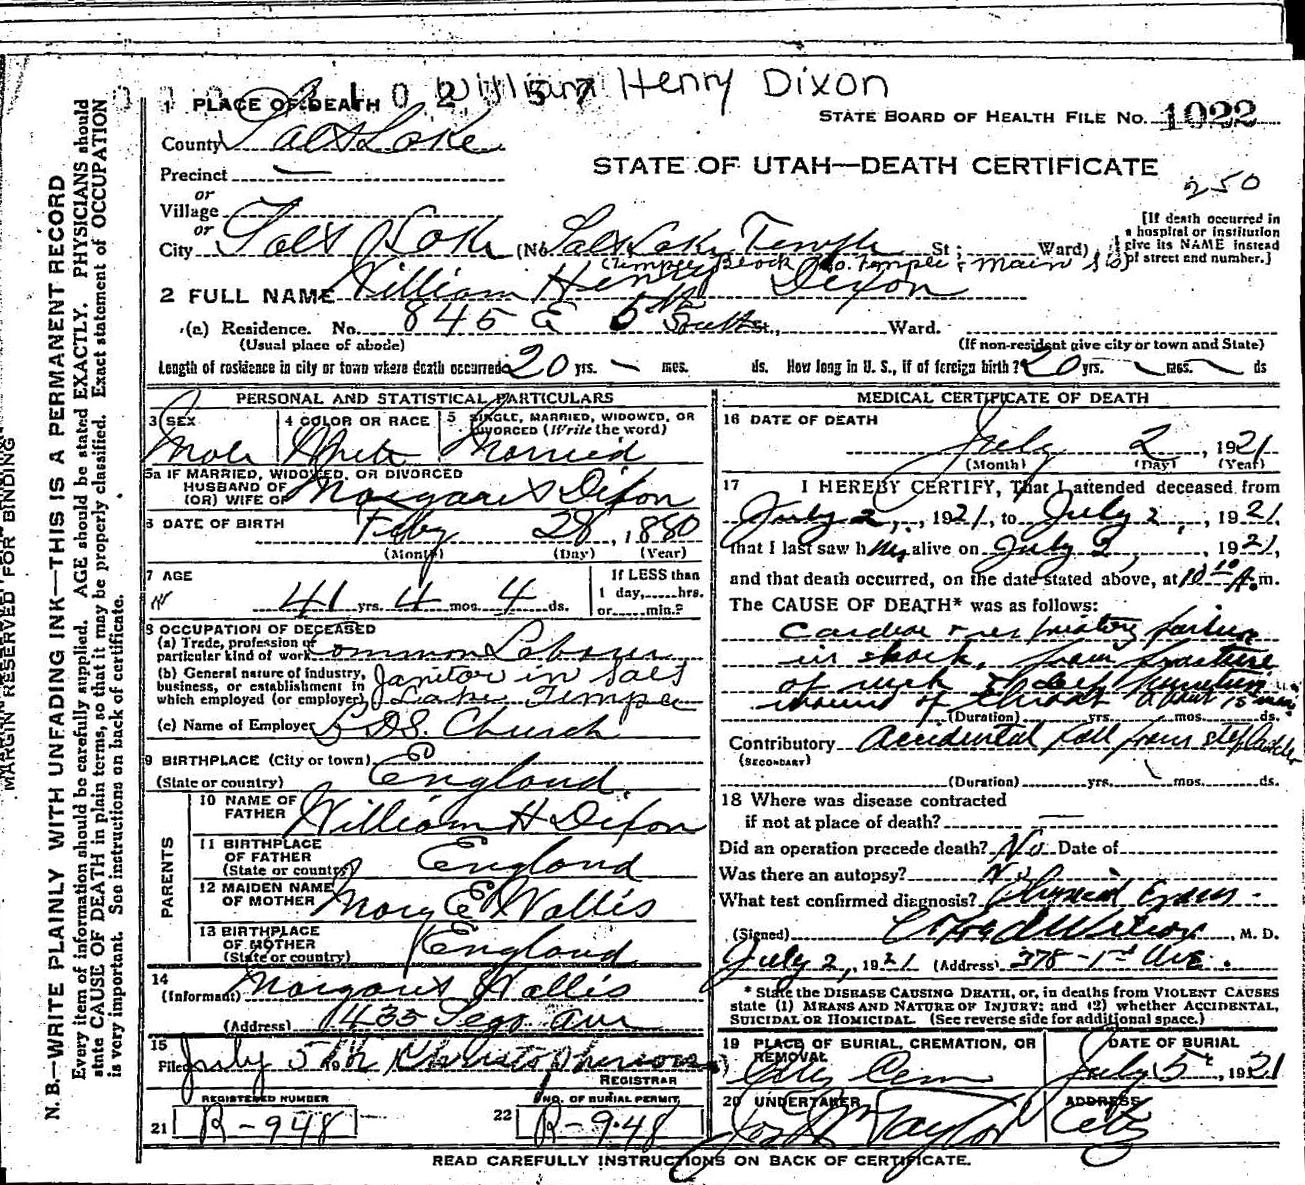 William Henry Dixon
1 PLACE OF DEATH
STATE BOARD OF HEALTH FILE No. 1022
County Salt Lake
STATE OF UTAH—DEATH CERTIFICATE
Precinct —
250
or
Village
or
City Salt Lake (No. Salt Lake Temple St; Ward)
(Temple Block So. Temple & Main Sts)
[If death occurred in a hospital or institution give its NAME instead of street and number.]
2 FULL NAME William Henry Dixon
(a) Residence. No. 845 E 5th South St., Ward.
(Usual place of abode) (If non-resident give city or town and State)
Length of residence in city or town where death occurred 20 yrs. — mos. ds. How long in U. S., if of foreign birth? 20 yrs. — mos. — ds
PERSONAL AND STATISTICAL PARTICULARS
3 SEX Male
4 COLOR OR RACE White
5 SINGLE, MARRIED, WIDOWED, OR DIVORCED (Write the word) Married
5a IF MARRIED, WIDOWED, OR DIVORCED
HUSBAND OF
(OR) WIFE OF Margaret Dixon
6 DATE OF BIRTH Feby 28, 1880
(Month) (Day) (Year)
7 AGE
41 yrs. 4 mos. 4 ds.
If LESS than
1 day, hrs.
or min.?
8 OCCUPATION OF DECEASED
(a) Trade, profession or
particular kind of work Common Laborer
(b) General nature of industry,
business, or establishment in
which employed (or employer) Janitor in Salt Lake Temple
(c) Name of Employer L D S. Church
9 BIRTHPLACE (City or town)
(State or country) England
PARENTS
10 NAME OF
FATHER William H Dixon
11 BIRTHPLACE
OF FATHER
(State or country) England
12 MAIDEN NAME
OF MOTHER Mary E Wallis
13 BIRTHPLACE
OF MOTHER
(State or country) England
14
(Informant) Margaret Wallis
(Address) 1435 Lego Ave
15
Filed July 5th
REGISTRAR
REGISTERED NUMBER
21 R-948
NO. OF BURIAL PERMIT
22 R-948
MEDICAL CERTIFICATE OF DEATH
16 DATE OF DEATH
July 2, 1921
(Month) (Day) (Year)
17 I HEREBY CERTIFY, That I attended deceased from
July 2, 1921, to July 2, 1921
that I last saw him alive on July 2, 1921,
and that death occurred, on the date stated above, at 10 10 A.m.
The CAUSE OF DEATH* was as follows:
Cardiac & respiratory failure
in shock, from fracture
of neck & deep puncture
wound of throat about 15 min
(Duration) yrs. mos. ds.
Contributory Accidental fall from stepladder
(SECONDARY)
(Duration) yrs. mos. ds.
18 Where was disease contracted
if not at place of death? —
Did an operation precede death? No Date of
Was there an autopsy? No
What test confirmed diagnosis? Physical Exam -
(Signed) , M. D.
July 2, 1921 (Address) 378 - 1st Ave.
* State the DISEASE CAUSING DEATH, or, in deaths from VIOLENT CAUSES
state (1) MEANS AND NATURE OF INJURY; and (2) whether ACCIDENTAL,
SUICIDAL OR HOMICIDAL. (See reverse side for additional space.)
19 PLACE OF BURIAL, CREMATION, OR
REMOVAL City Cem
DATE OF BURIAL
July 5, 1921
20 UNDERTAKER Taylor
ADDRESS City
READ CAREFULLY INSTRUCTIONS ON BACK OF CERTIFICATE.
MARGIN RESERVED FOR BINDING
N. B.—WRITE PLAINLY WITH UNFADING INK—THIS IS A PERMANENT RECORD
Every item of information should be carefully supplied. AGE should be stated EXACTLY. PHYSICIANS should
state CAUSE OF DEATH in plain terms, so that it may be properly classified. Exact statement of OCCUPATION
is very important. See instructions on back of certificate.